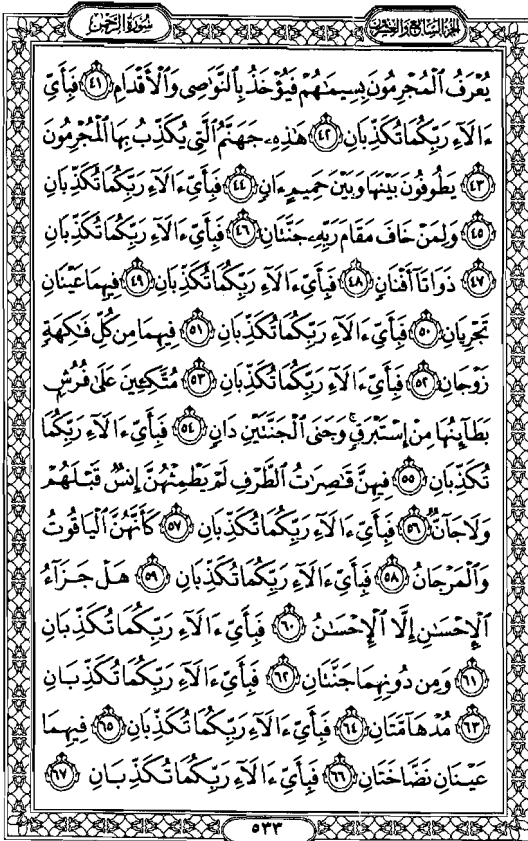 سُورَةُ الرَّحْمَٰن
الجزء السابع والعشرون
يُعْرَفُ ٱلْمُجْرِمُونَ بِسِيمَٰهُمْ فَيُؤْخَذُ بِٱلنَّوَٰصِى وَٱلْأَقْدَامِ ٤١ فَبِأَىِّ
ءَالَآءِ رَبِّكُمَا تُكَذِّبَانِ ٤٢ هَٰذِهِۦ جَهَنَّمُ ٱلَّتِى يُكَذِّبُ بِهَا ٱلْمُجْرِمُونَ
٤٣ يَطُوفُونَ بَيْنَهَا وَبَيْنَ حَمِيمٍ ءَانٍ ٤٤ فَبِأَىِّ ءَالَآءِ رَبِّكُمَا تُكَذِّبَانِ
٤٥ وَلِمَنْ خَافَ مَقَامَ رَبِّهِۦ جَنَّتَانِ ٤٦ فَبِأَىِّ ءَالَآءِ رَبِّكُمَا تُكَذِّبَانِ
٤٧ ذَوَاتَآ أَفْنَانٍ ٤٨ فَبِأَىِّ ءَالَآءِ رَبِّكُمَا تُكَذِّبَانِ ٤٩ فِيهِمَا عَيْنَانِ
تَجْرِيَانِ ٥٠ فَبِأَىِّ ءَالَآءِ رَبِّكُمَا تُكَذِّبَانِ ٥١ فِيهِمَا مِن كُلِّ فَٰكِهَةٍ
زَوْجَانِ ٥٢ فَبِأَىِّ ءَالَآءِ رَبِّكُمَا تُكَذِّبَانِ ٥٣ مُتَّكِـِٔينَ عَلَىٰ فُرُشٍۭ
بَطَآئِنُهَا مِنْ إِسْتَبْرَقٍ ۚ وَجَنَى ٱلْجَنَّتَيْنِ دَانٍ ٥٤ فَبِأَىِّ ءَالَآءِ رَبِّكُمَا
تُكَذِّبَانِ ٥٥ فِيهِنَّ قَٰصِرَٰتُ ٱلطَّرْفِ لَمْ يَطْمِثْهُنَّ إِنسٌ قَبْلَهُمْ
وَلَا جَآنٌّ ٥٦ فَبِأَىِّ ءَالَآءِ رَبِّكُمَا تُكَذِّبَانِ ٥٧ كَأَنَّهُنَّ ٱلْيَاقُوتُ
وَٱلْمَرْجَانُ ٥٨ فَبِأَىِّ ءَالَآءِ رَبِّكُمَا تُكَذِّبَانِ ٥٩ هَلْ جَزَآءُ
ٱلْإِحْسَٰنِ إِلَّا ٱلْإِحْسَٰنُ ٦٠ فَبِأَىِّ ءَالَآءِ رَبِّكُمَا تُكَذِّبَانِ
٦١ وَمِن دُونِهِمَا جَنَّتَانِ ٦٢ فَبِأَىِّ ءَالَآءِ رَبِّكُمَا تُكَذِّبَانِ
٦٣ مُدْهَآمَّتَانِ ٦٤ فَبِأَىِّ ءَالَآءِ رَبِّكُمَا تُكَذِّبَانِ ٦٥ فِيهِمَا
عَيْنَانِ نَضَّاخَتَانِ ٦٦ فَبِأَىِّ ءَالَآءِ رَبِّكُمَا تُكَذِّبَانِ ٦٧
٥٣٣